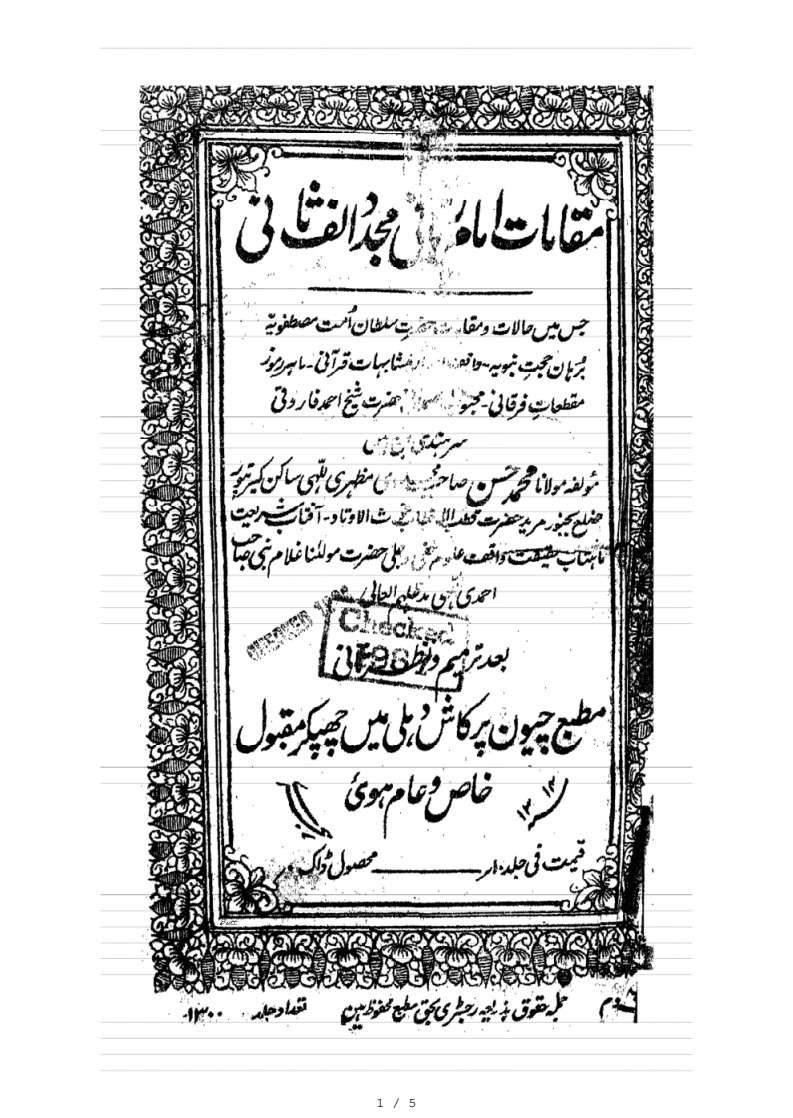 مقامات امام ربانی مجدد الف ثانی
جس میں حالات و مقامات حضرت سلطان اُمت مصطفویہ
بُرہان حجتِ نبویہ - واقف متشابہات قرآنی - ماہر رموز
مقطعاتِ فرقانی - حضرت شیخ احمد فاروقی
سرہندی
مؤلفہ مولانا محمد حسن صاحب مجددی مظہری للّٰہی ساکن کیرتپور
ضلع بجنور مرید حضرت قطب الاوتاد - آفتاب شریعت
ماہتاب حقیقت واقف علوم خفی و جلی حضرت مولٰنا غلام نبی صاحب
احمدی للّٰہی مدظلہم العالی
CHECKED
Checked
بعد ترمیم و نظر ثانی
مطبع جیون پرکاش دہلی میں چھپکر مقبول
خاص و عام ہوئ
قیمت فی جلد محصول ڈاک
جملہ حقوق بذریعہ رجسٹری بحق مطبع محفوظ ہیں تعداد جلد ۱۳۰۰
1 / 5